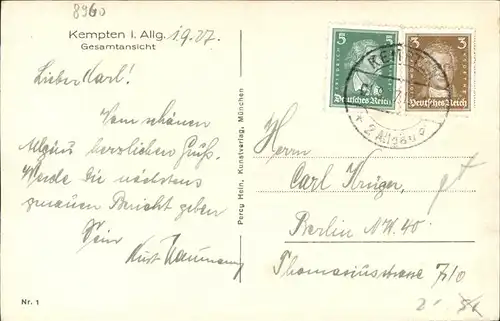 8960
Kempten i. Allg. 19.27.
Gesamtansicht
Lieber Karl!
Vom schönen
Allgäu herzlichen Gruß.
Werde Dir nächstens
genauen Bericht geben
Dein
Kurt
Percy Hein, Kunstverlag, München
5 5
Deutsches Reich
3 3
Deutsches Reich
Herrn
Carl Krüger,
Berlin N.W. 40.
Thomasiusstrasse
Nr. 1